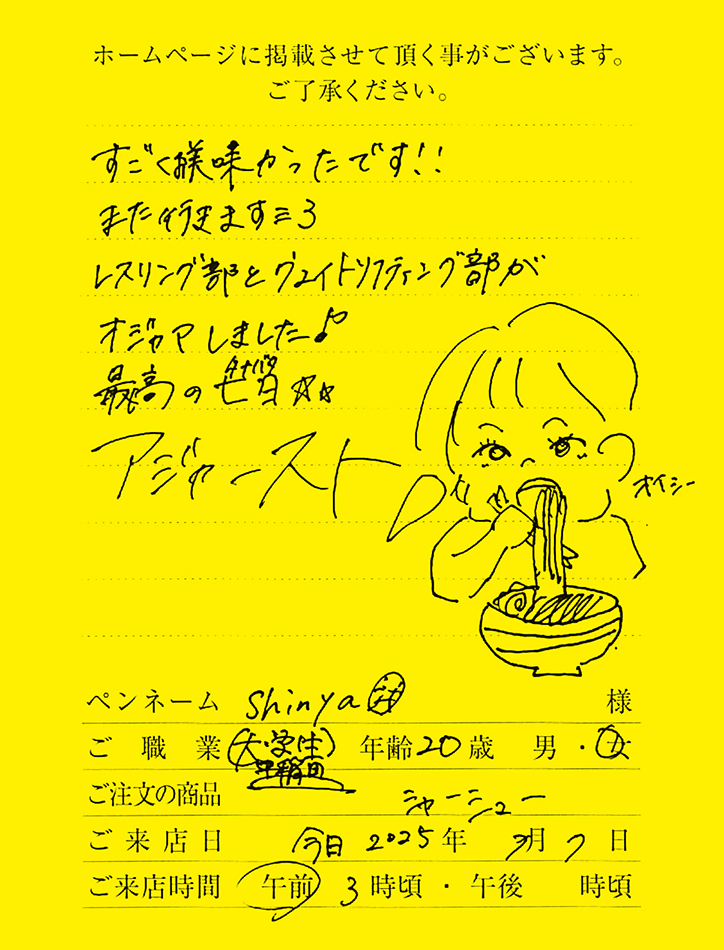 ホームページに掲載させて頂く事がございます。
ご了承ください。
すごく美味かったです!!
また行きます
レスリング部とウェイトリフティング部が
オジャマしました♪
タナバタ
最高の七夕☆☆
アジャースト
オイシー
ペンネーム Shinya 様
ご職業 (大学生) 年齢 20 歳 男・女
早稲田
ご注文の商品 シャーシュー
ご来店日 今日 2025年 7月 7日
ご来店時間 午前 3 時頃・午後 時頃